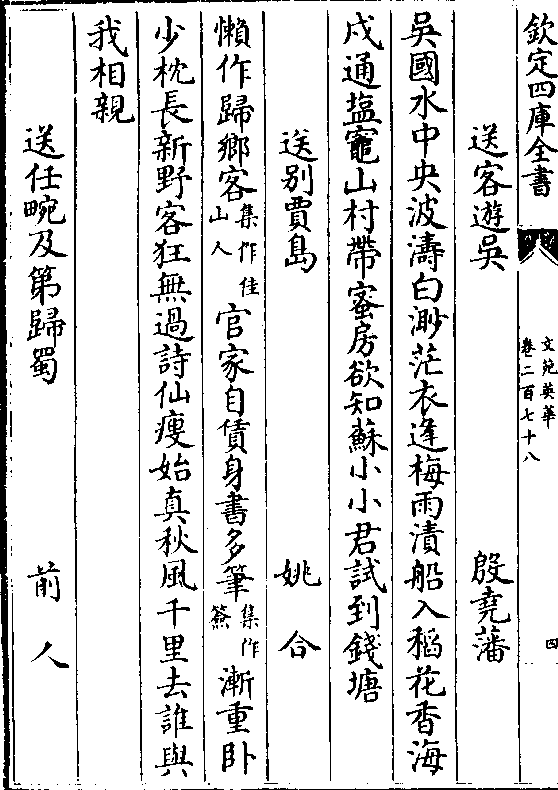 欽定四庫全書
文苑英華
卷二百七十八
四
送客遊吳 殷堯藩
吳國水中央波濤白渺茫衣逢梅雨漬船入稻花香海
戍通塩竈山村帶蜜房欲知蘇小小君試到錢塘
送别賈島 姚合
懶作歸鄉客集作住山人官家自賃身書多筆集作簽漸重卧
少枕長新野客狂無過詩仙瘦始真秋風千里去誰與
我相親
送任畹及第歸蜀 前人